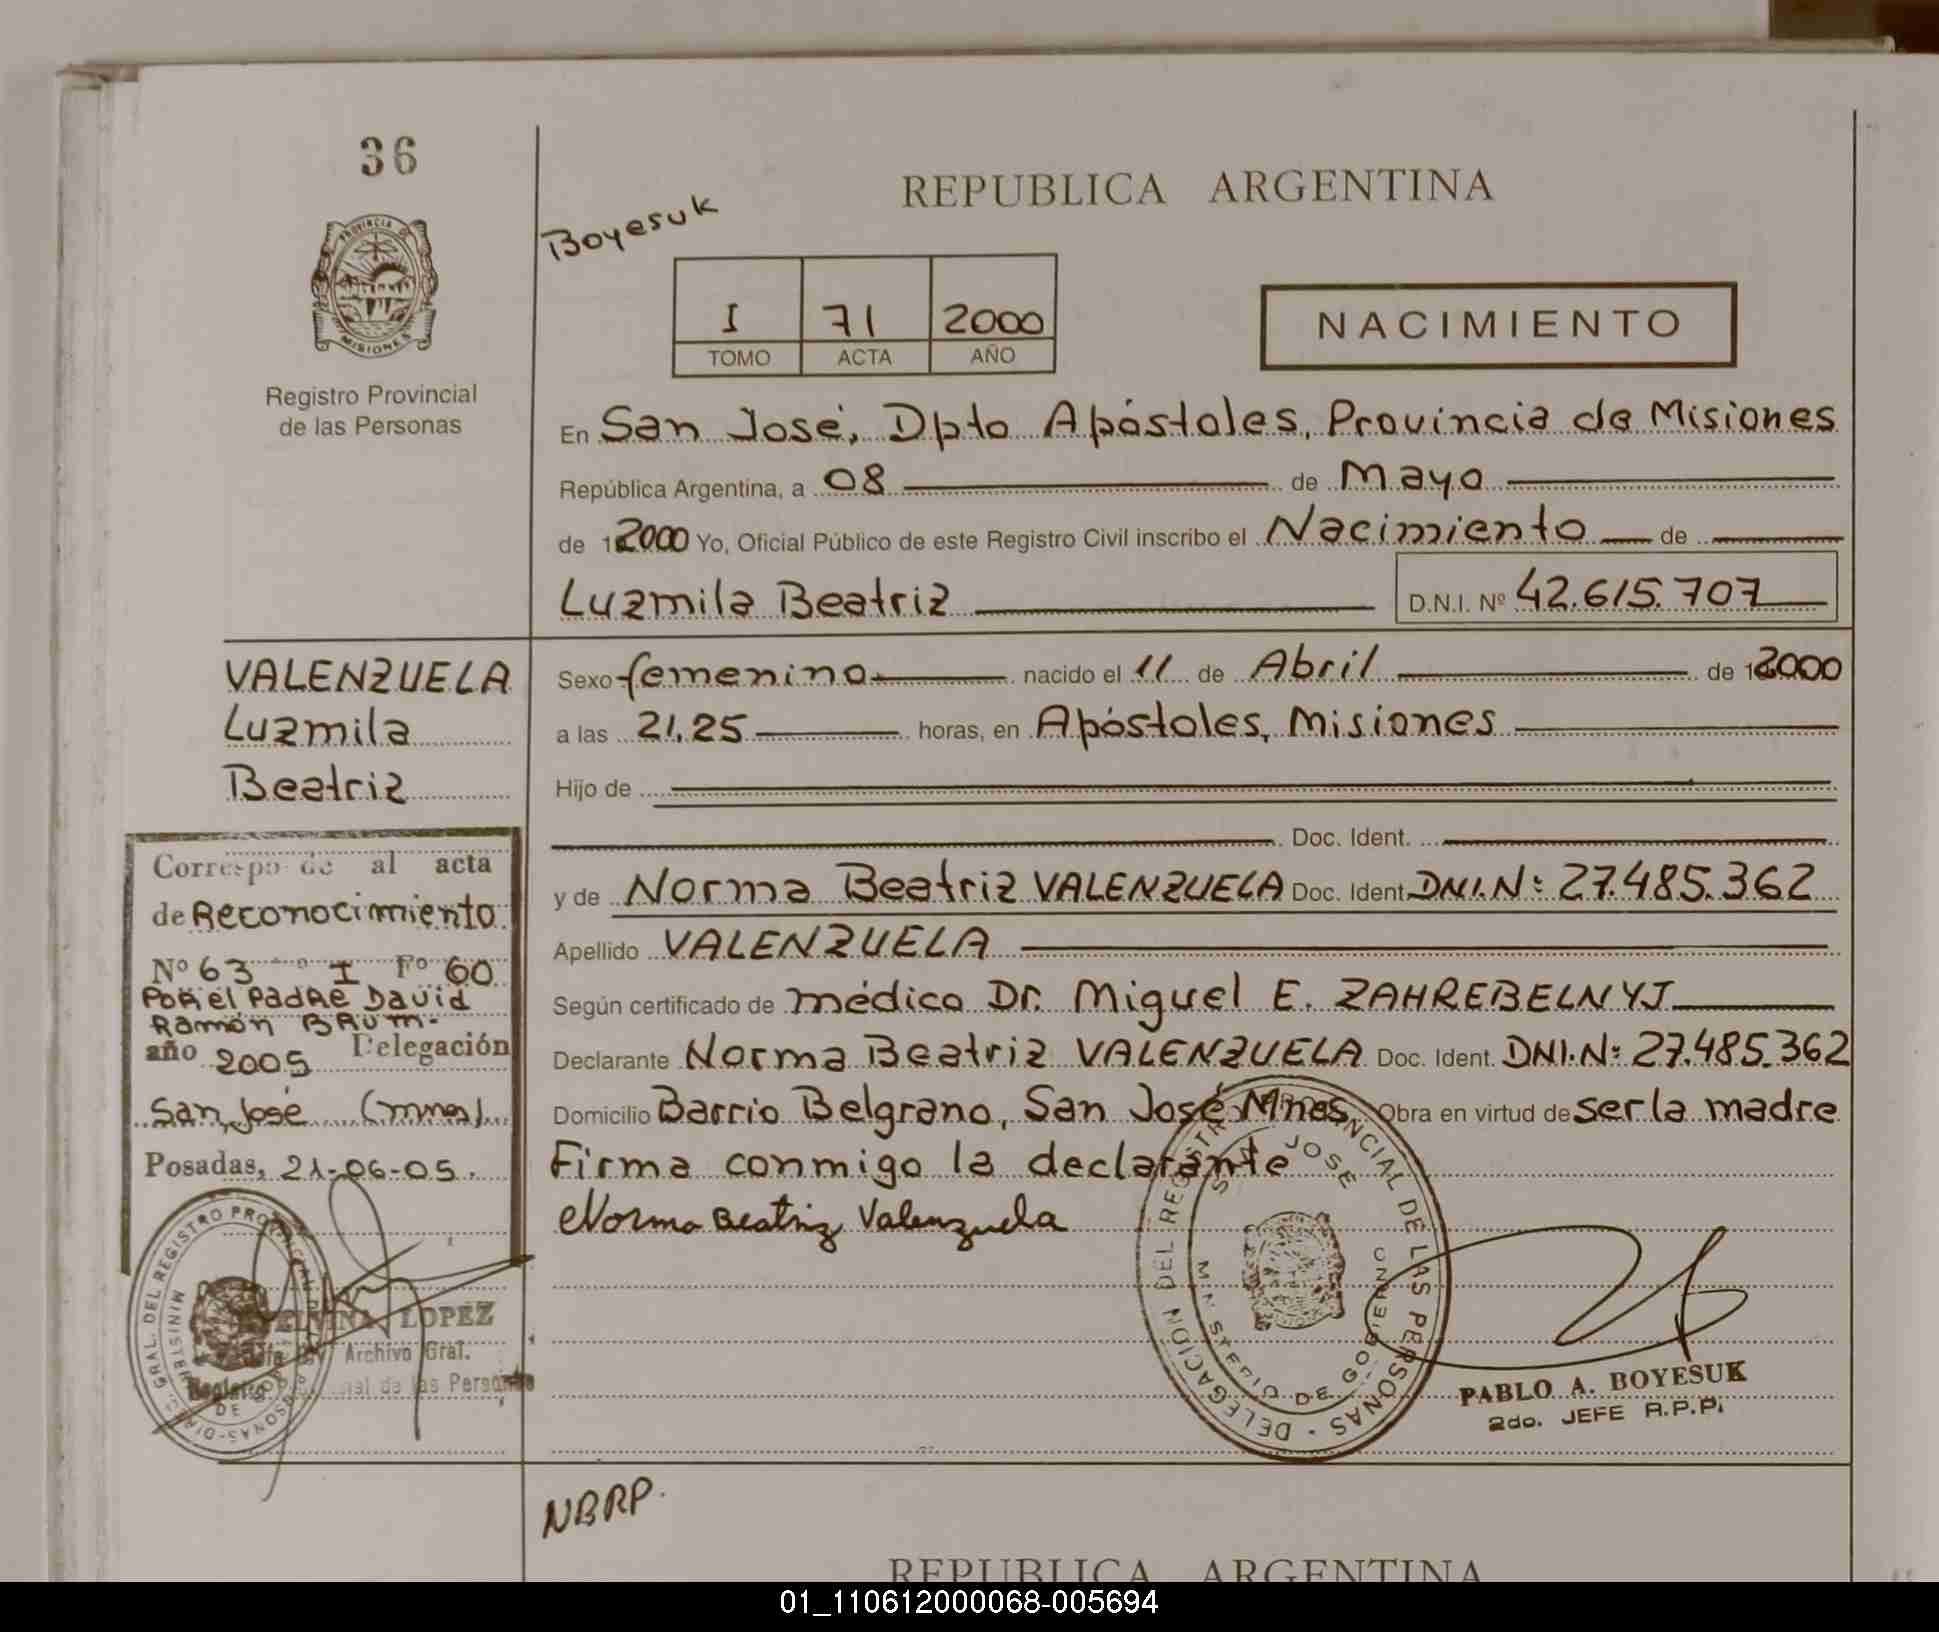 36
REPUBLICA ARGENTINA
Boyesuk
PROVINCIA DE
MISIONES
I 71 2000
TOMO ACTA AÑO
NACIMIENTO
Registro Provincial
de las Personas
En San José, Dpto Apóstoles, Provincia de Misiones
República Argentina, a 08 de Mayo
de 12000 Yo, Oficial Público de este Registro Civil inscribo el Nacimiento de
Luzmila Beatriz D.N.I. Nº 42.615.707
VALENZUELA
Luzmila
Beatriz
Sexo femenino nacido el 11 de Abril de 12000
a las 21.25 horas, en Apóstoles, Misiones
Hijo de
Doc. Ident.
y de Norma Beatriz VALENZUELA Doc. Ident. DNI.N: 27.485.362
Apellido VALENZUELA
Según certificado de médico Dr. Miguel E. ZAHREBELNYJ
Declarante Norma Beatriz VALENZUELA Doc. Ident. DNI.N: 27.485.362
Domicilio Barrio Belgrano, San José Mnes. Obra en virtud de ser la madre
Firma conmigo la declarante
Norma Beatriz Valenzuela
Correspo de al acta
de Reconocimiento
Nº 63 I Fº 60
POR el PADRE David
Ramón BAUM.
año 2005 Delegación
San José (mnes)
Posadas, 21-06-05.
LOPEZ
Archivo Gral.
Registro de las Personas
DELEGACION DEL REGISTRO PROVINCIAL DE LAS PERSONAS
SAN JOSE
MINISTERIO DE GOBIERNO
PABLO A. BOYESUK
2do. JEFE R.P.P.
NBRP.
REPUBLICA ARGENTINA
01_110612000068-005694